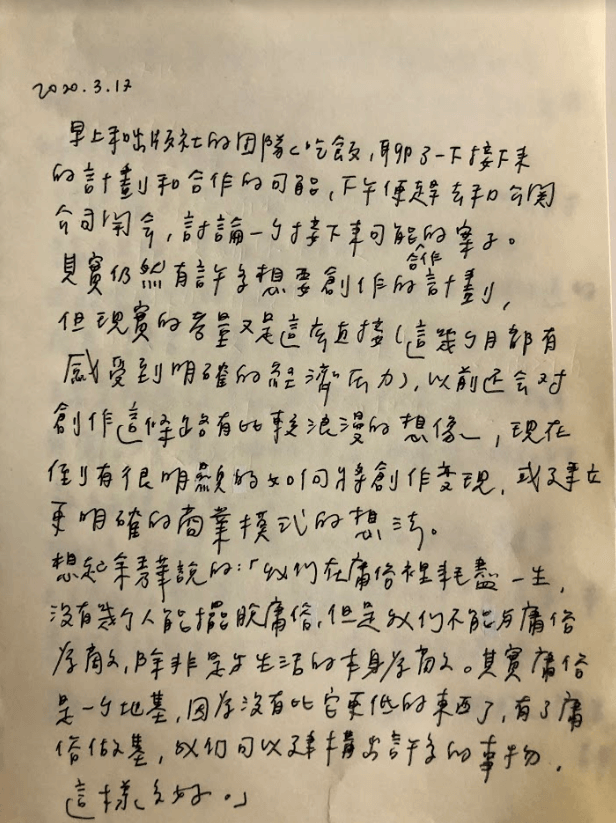 2020.3.17
早上和出版社的团隊吃飯,聊了一下接下來
的計劃和合作的可能,下午便趕去和公関
公司開会,討論一个接下來可能的案子。
其實仍然有許多想要創作的合作計劃,
但現實的考量又是這麼直接(這幾个月都有
感受到明確的經濟压力),以前还会对
創作這條路有比較浪漫的想像,現在
倒有很明顯的如何將創作变現,或建立
更明確的商業模式的想法。
想起余秀華說的:「我们在庸俗裡耗盡一生,
沒有幾个人能擺脫庸俗,但是我们不能与庸俗
为敵,除非是与生活的本身为敵。其實庸俗
是一个地基,因为沒有比它更低的東西了,有了庸
俗做基,我们可以建構出許多的事物,
這樣多好。」